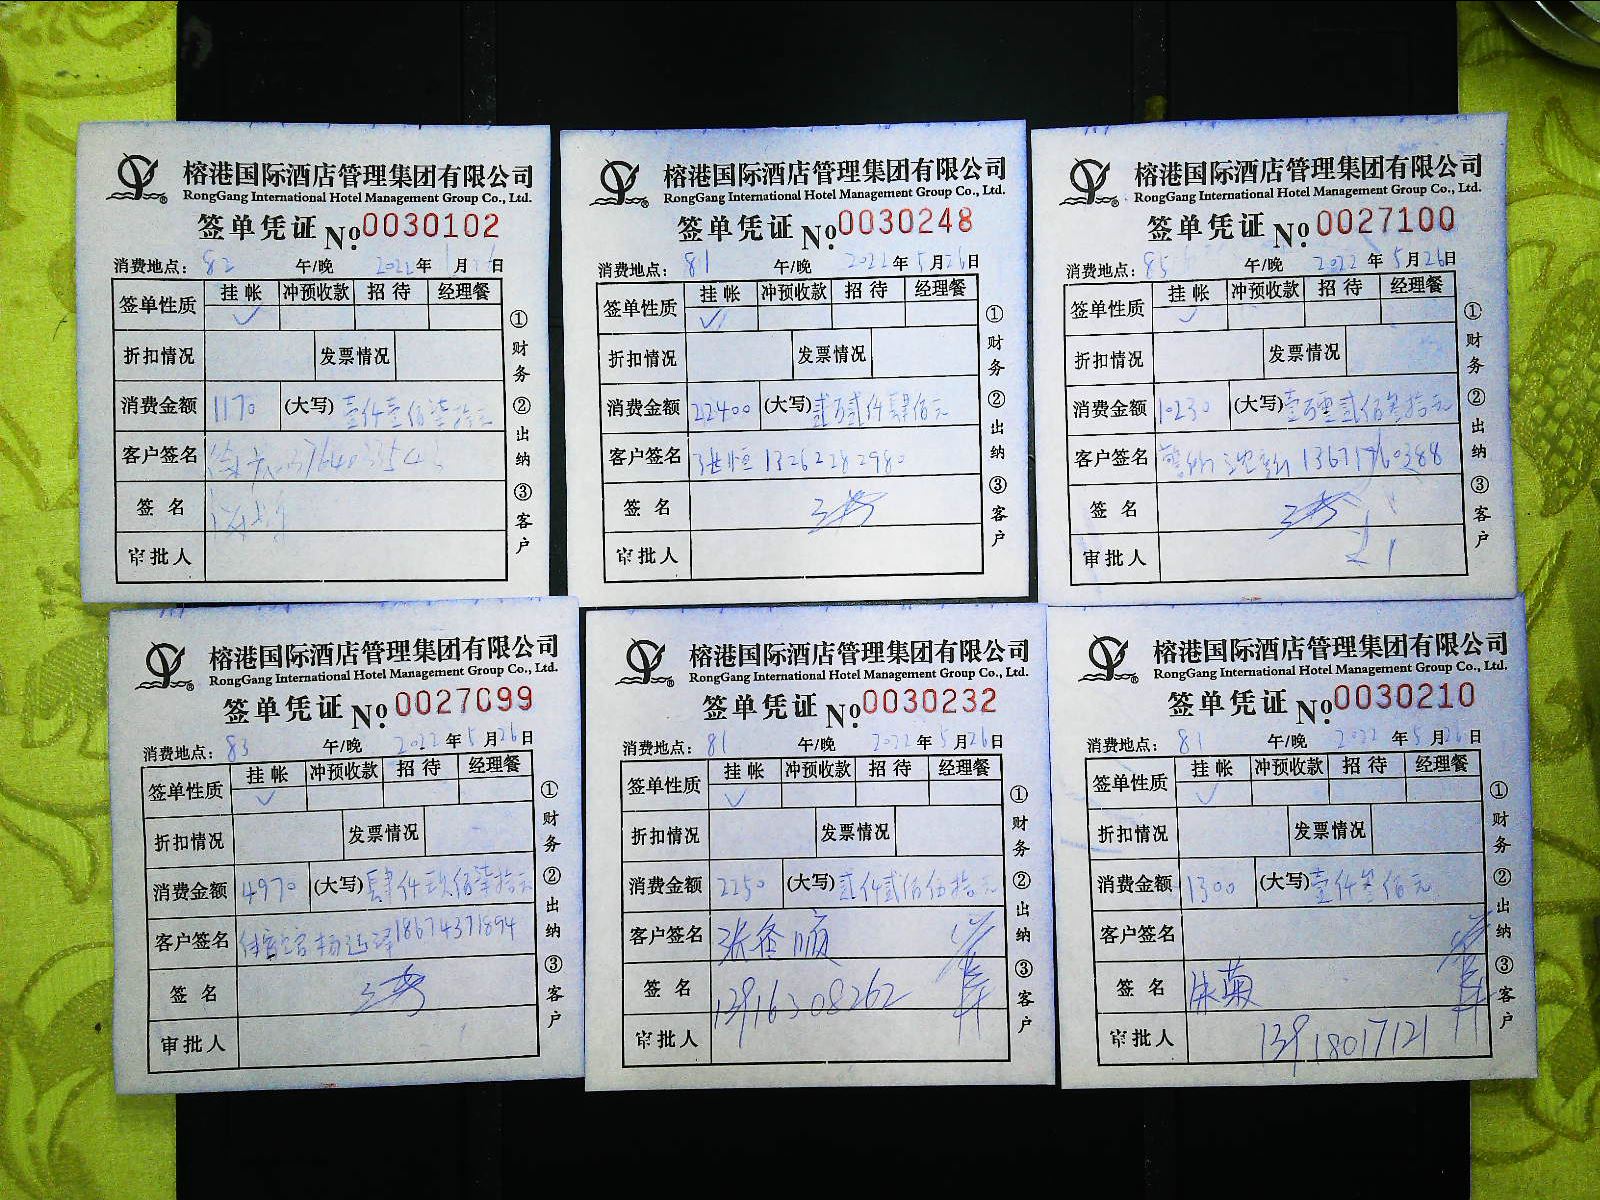 榕港国际酒店管理集团有限公司
RongGang International Hotel Management Group Co., Ltd.
签单凭证 No. 0030102
消费地点: 82 午/晚 2022年 月 日
签单性质 挂帐 冲预收款 招待 经理餐
✓
折扣情况 发票情况
消费金额 1170 (大写) 壹仟壹佰柒拾元
客户签名
签名
审批人
①财务 ②出纳 ③客户
榕港国际酒店管理集团有限公司
RongGang International Hotel Management Group Co., Ltd.
签单凭证 No. 0030248
消费地点: 81 午/晚 2022年5月26日
签单性质 挂帐 冲预收款 招待 经理餐
✓
折扣情况 发票情况
消费金额 22400 (大写) 贰万贰仟肆佰元
客户签名 张恒 13262282980
签名
审批人
①财务 ②出纳 ③客户
榕港国际酒店管理集团有限公司
RongGang International Hotel Management Group Co., Ltd.
签单凭证 No. 0027100
消费地点: 85 午/晚 2022年5月26日
签单性质 挂帐 冲预收款 招待 经理餐
✓
折扣情况 发票情况
消费金额 10230 (大写) 壹万零贰佰叁拾元
客户签名 13671760388
签名
审批人
①财务 ②出纳 ③客户
榕港国际酒店管理集团有限公司
RongGang International Hotel Management Group Co., Ltd.
签单凭证 No. 0027099
消费地点: 83 午/晚 2022年5月26日
签单性质 挂帐 冲预收款 招待 经理餐
✓
折扣情况 发票情况
消费金额 4970 (大写) 肆仟玖佰柒拾元
客户签名 18674371894
签名
审批人
①财务 ②出纳 ③客户
榕港国际酒店管理集团有限公司
RongGang International Hotel Management Group Co., Ltd.
签单凭证 No. 0030232
消费地点: 81 午/晚 2022年5月26日
签单性质 挂帐 冲预收款 招待 经理餐
✓
折扣情况 发票情况
消费金额 2250 (大写) 贰仟贰佰伍拾元
客户签名
签名 13916308262
审批人
①财务 ②出纳 ③客户
榕港国际酒店管理集团有限公司
RongGang International Hotel Management Group Co., Ltd.
签单凭证 No. 0030210
消费地点: 81 午/晚 2022年5月26日
签单性质 挂帐 冲预收款 招待 经理餐
✓
折扣情况 发票情况
消费金额 1300 (大写) 壹仟叁佰元
客户签名
签名 朱菊
审批人 13918017121
①财务 ②出纳 ③客户